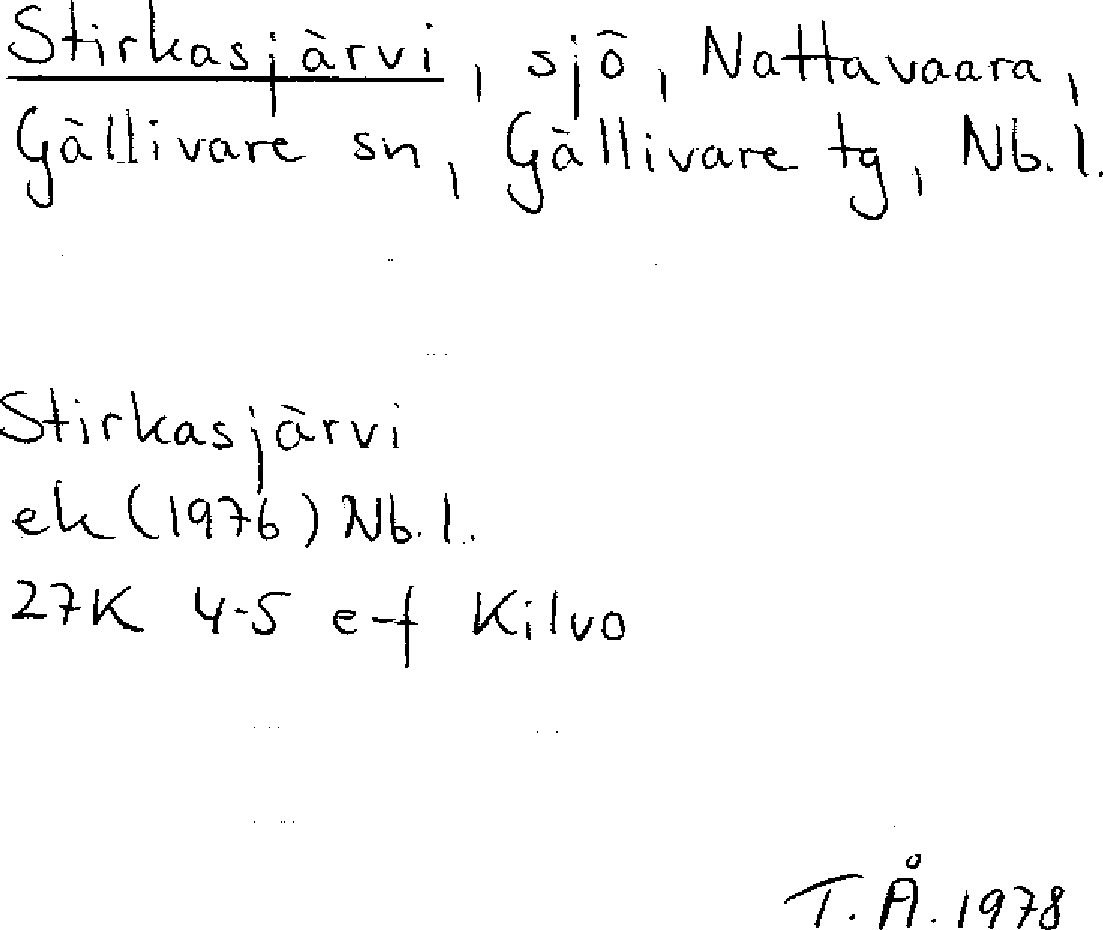 Stirkasjärvi, sjö, Nattavaara,
Gällivare sn, Gällivare tg, Nb. l.
Stirkasjärvi
ek (1976) Nb. l.
27K 4-5 e-f Kilvo
T.Å. 1978